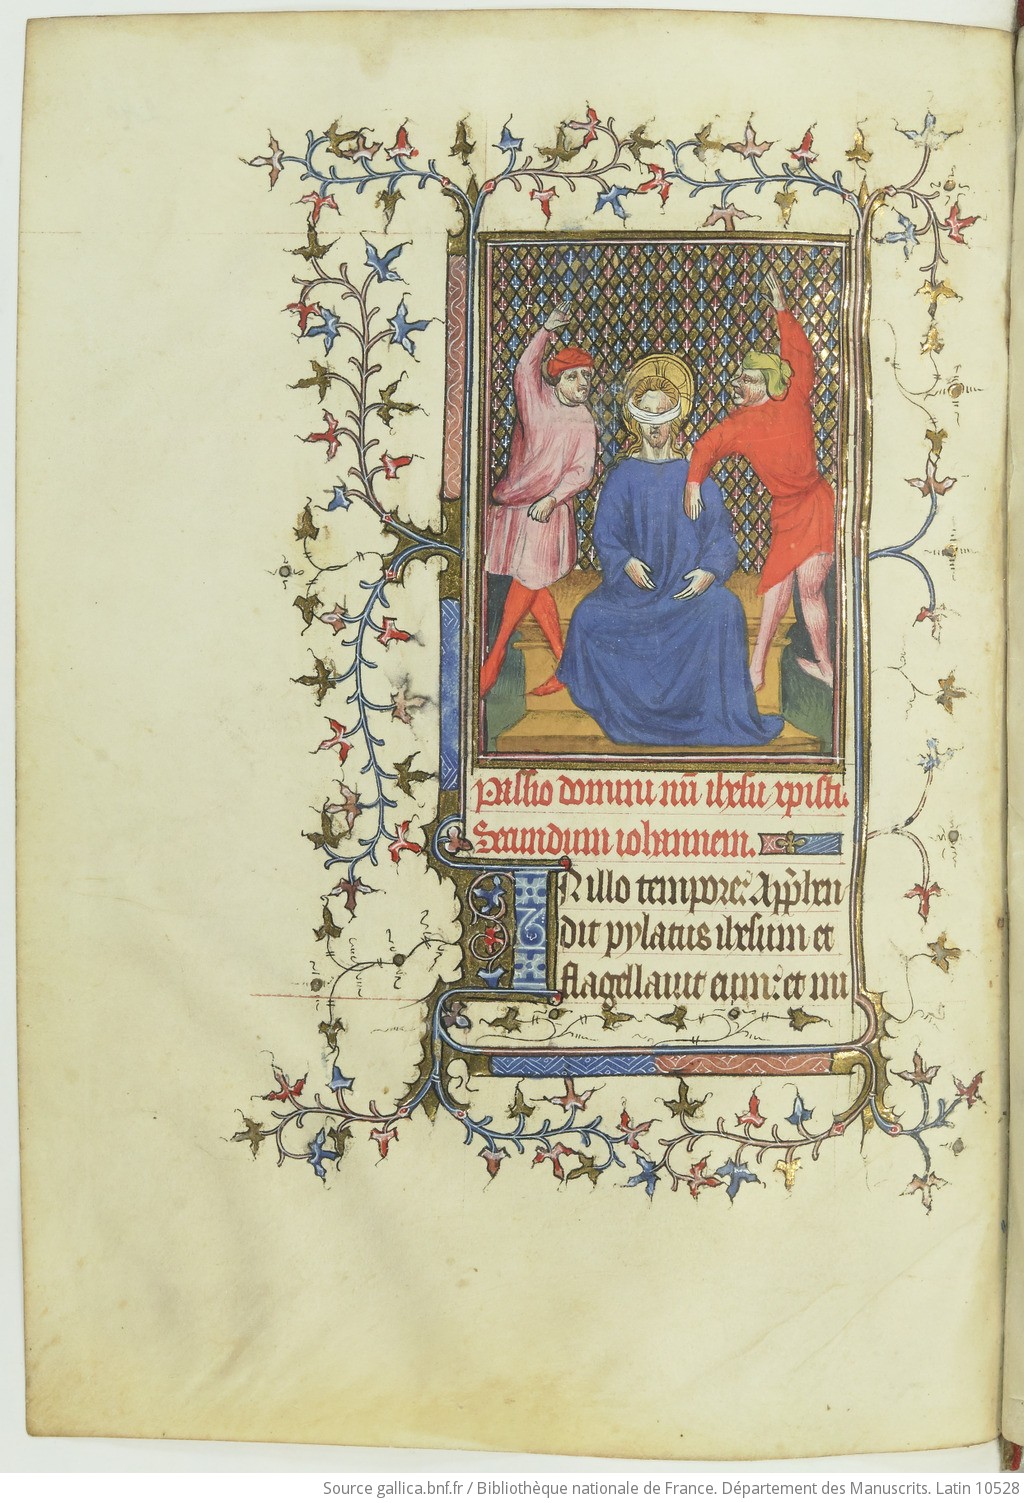 Passio domini nr̄i ihesu xpisti.
Secundum iohannem.
IN illo tempore: App̄hen
dit pylatus ihesum et
flagellauit eum: et mi
Source gallica.bnf.fr / Bibliothèque nationale de France. Département des Manuscrits. Latin 10528